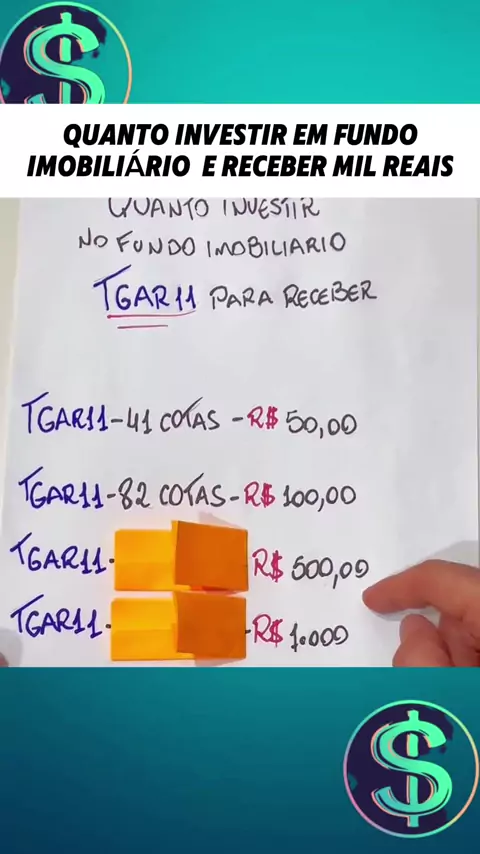 QUANTO INVESTIR EM FUNDO
IMOBILIÁRIO E RECEBER MIL REAIS
QUANTO INVESTIR
NO FUNDO IMOBILIARIO
TGAR11 PARA RECEBER
TGAR11-41 COTAS - R$ 50,00
TGAR11-82 COTAS- R$ 100,00
TGAR11- R$ 500,00
TGAR11- -R$ 1.000